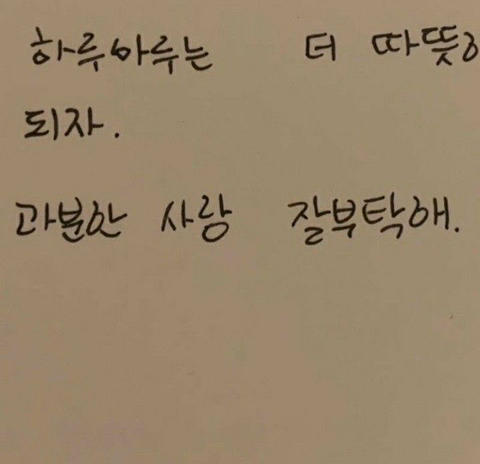 하루하루는 더 따뜻
되자.
과분한 사랑 잘부탁해.